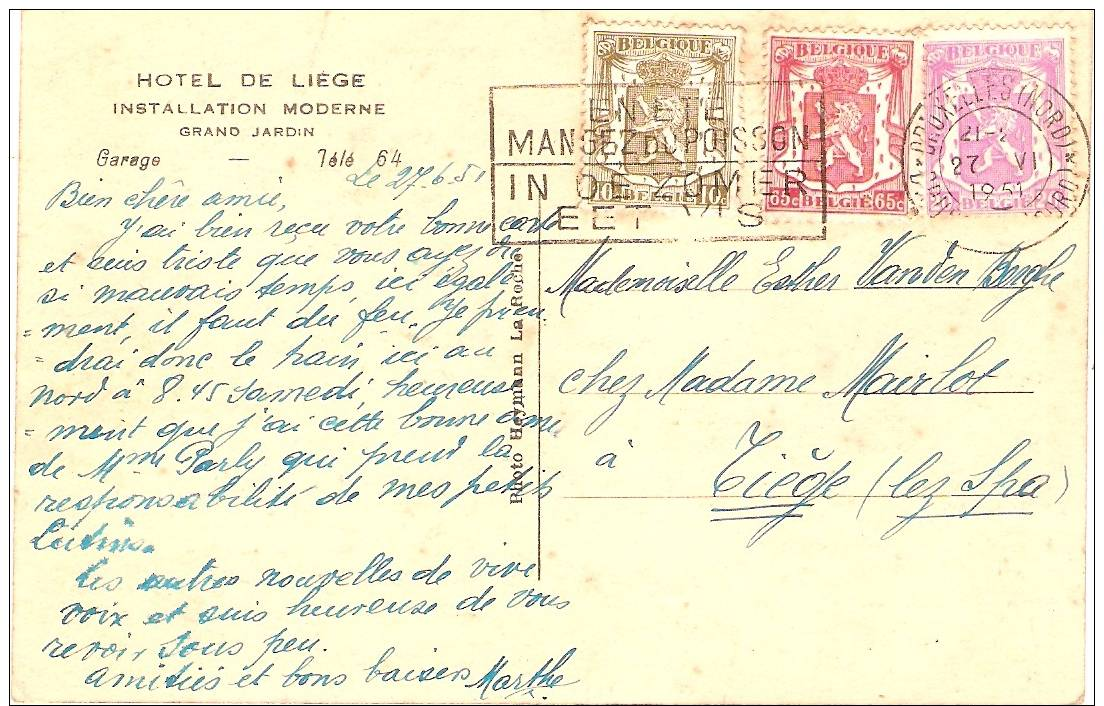 HOTEL DE LIÉGE
INSTALLATION MODERNE
GRAND JARDIN
Garage — Télé 64
Le 27.6.51
Bien chère amie,
J'ai bien reçu votre bonne carte
et suis triste que vous ayez du
si mauvais temps, ici égale
= ment, il faut du feu. Je pren
= drai donc le train, ici au
nord à 8.45 samedi, heureuse
= ment que j'ai cette bonne âme
de Mme Parly qui prend la
responsabilité de mes petits
lutins.
Les autres nouvelles de vive
voix et suis heureuse de vous
revoir sous peu.
Amitiés et bons baisers Marthe
Photo Heymann La Roche
BELGIQUE
10c BELGIË 10c
BELGIQUE
65c BELGIË 65c
BELGIQUE
BELGIË
EN ÉTÉ
MANGEZ DU POISSON
IN DE ZOMER
EET VIS
BRUXELLES (NORD)
27 VI
1951
Mademoiselle Esther Vanden Borghe
chez Madame Mairlot
à Tiège (lez Spa)